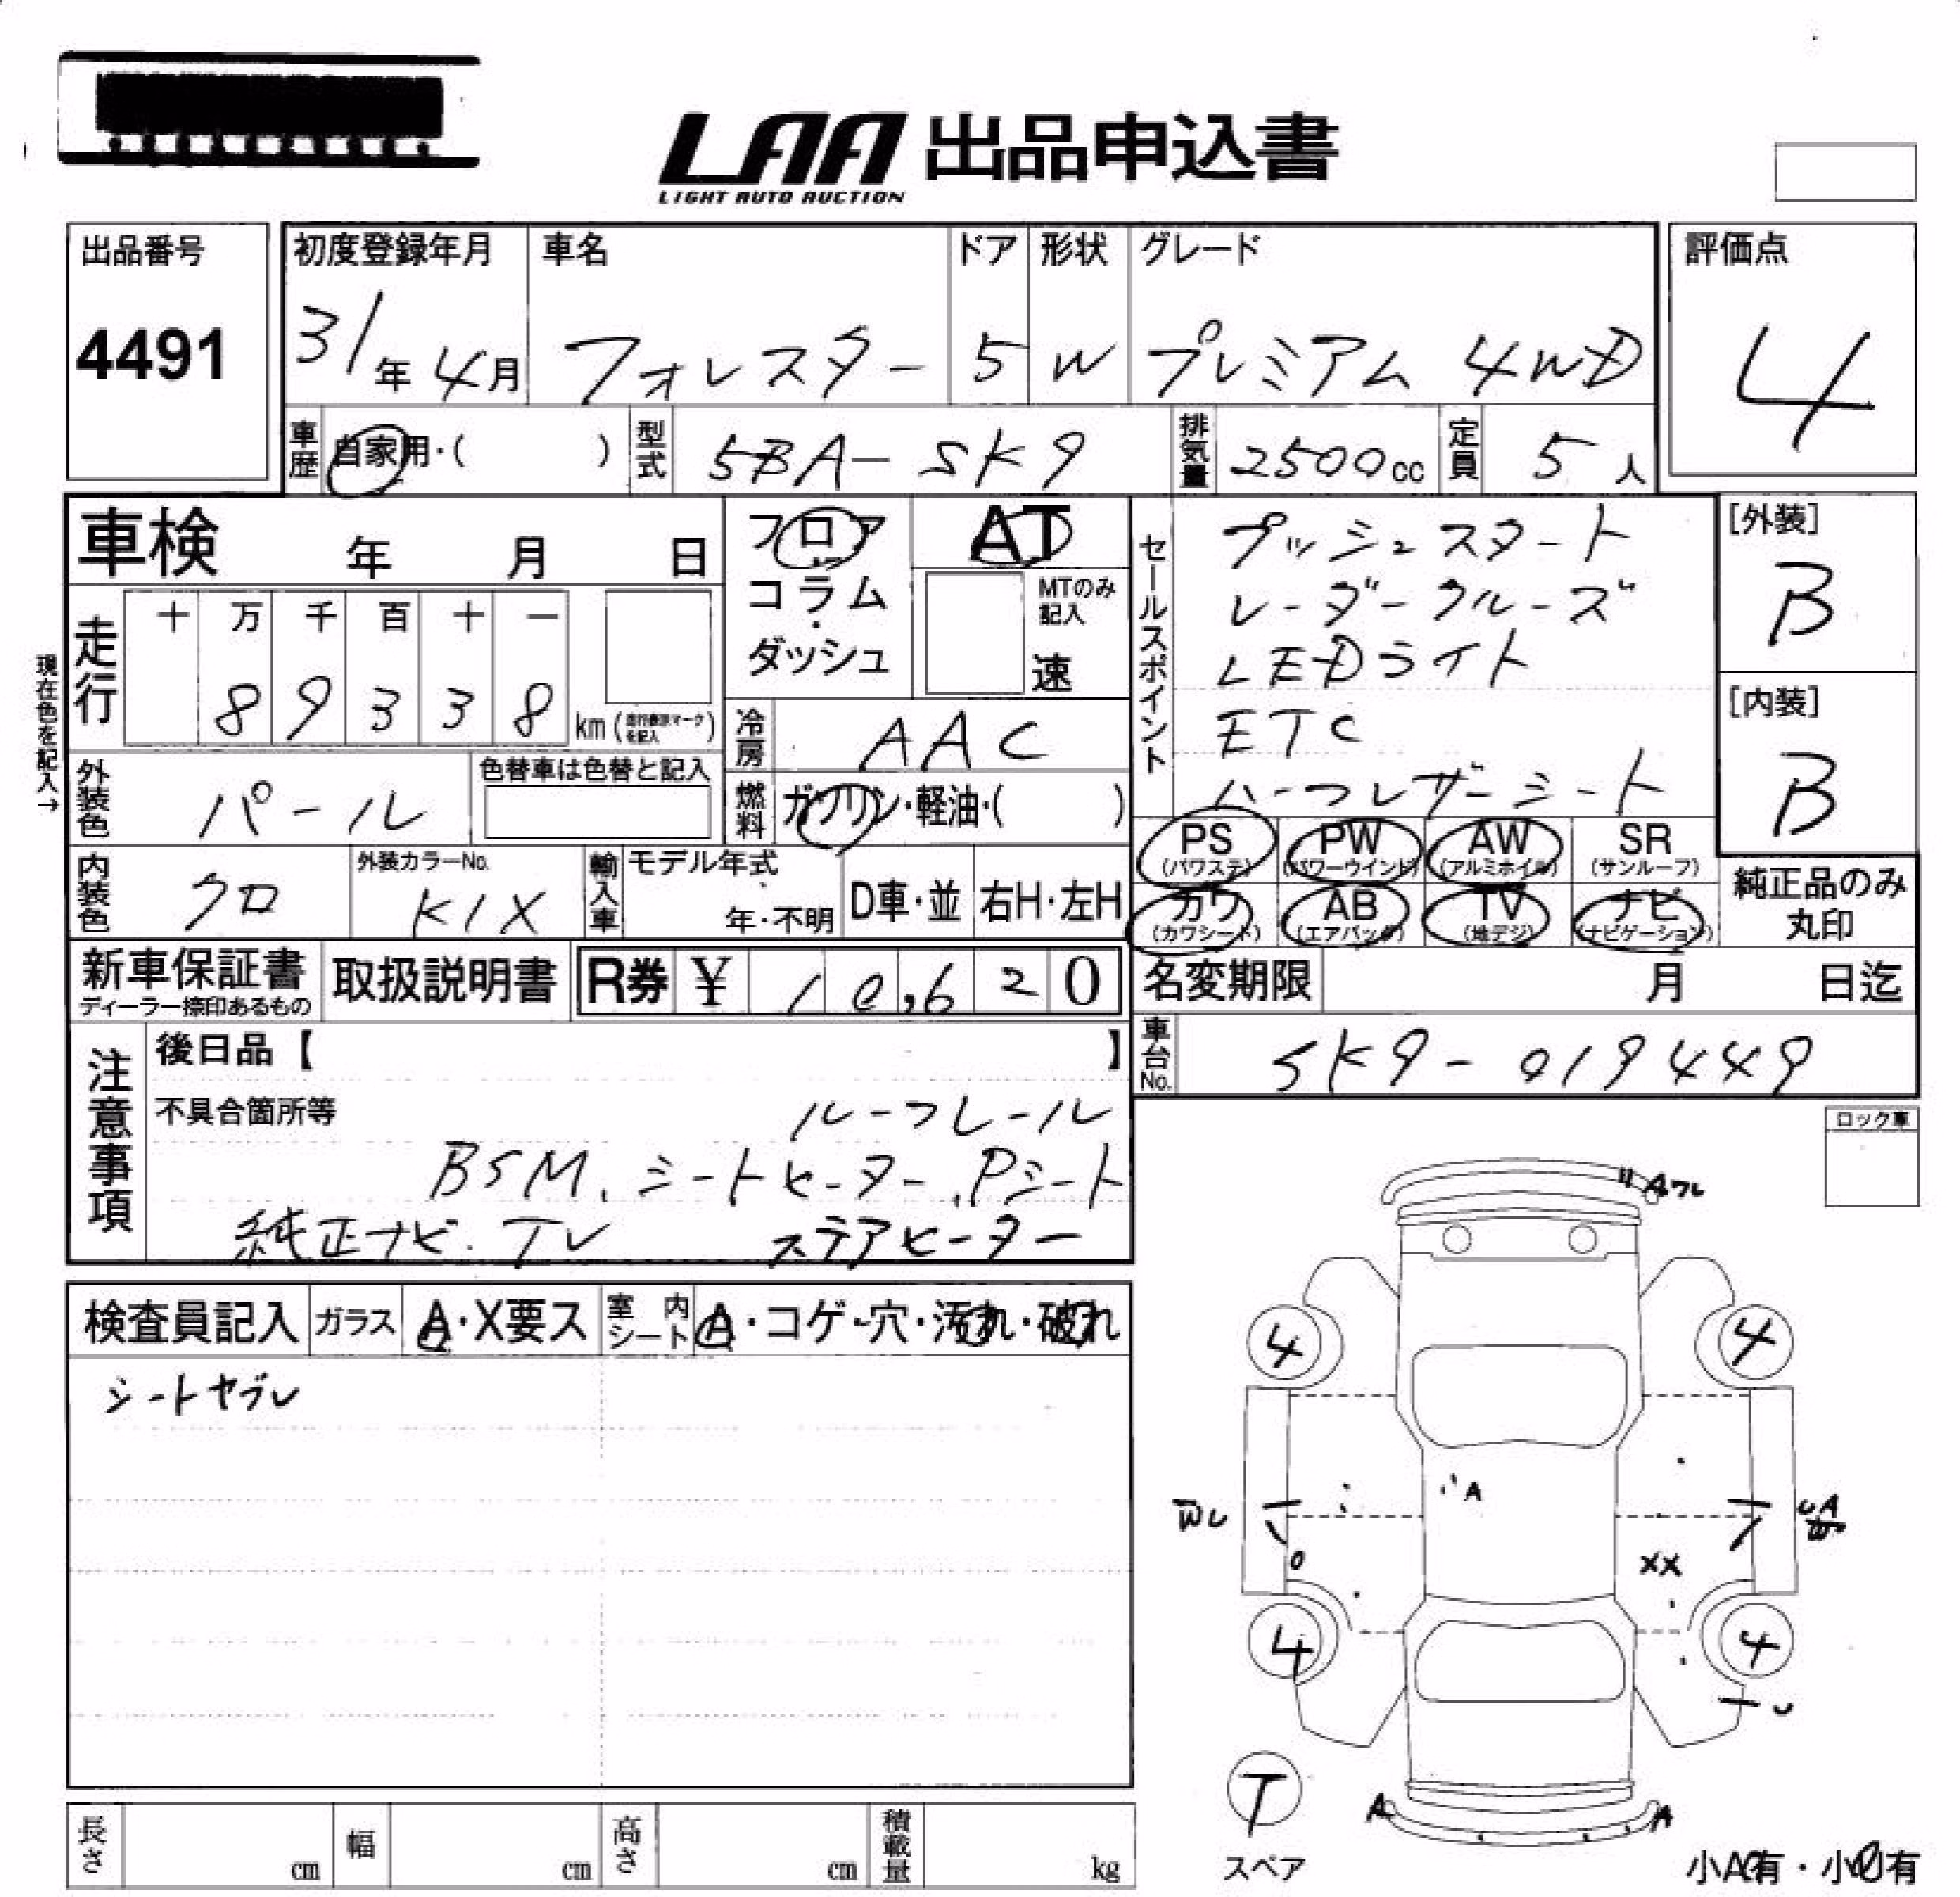 LAA 出品申込書
LIGHT AUTO AUCTION
出品番号
4491
初度登録年月
31年4月
車名
フォレスター
ドア
5
形状
W
グレード
プレミアム 4WD
評価点
4
車歴
自家用・( )
型式
5BA-SK9
排気量
2500cc
定員
5人
車検 年 月 日
フロア
コラム
・
ダッシュ
AT
MTのみ
記入
速
セールスポイント
プッシュスタート
レーダークルーズ
LEDライト
ETC
ハーフレザーシート
[外装]
B
[内装]
B
現在色を記入→
走行
十 万 千 百 十 一
8 9 3 3 8 km
冷房
AAC
外装色
パール
色替車は色替と記入
燃料
ガソリン・軽油・( )
PS
(パワステ)
PW
(パワーウインド)
AW
(アルミホイル)
SR
(サンルーフ)
カワ
(カワシート)
AB
(エアバッグ)
TV
(地デジ)
ナビ
(ナビゲーション)
純正品のみ
丸印
内装色
クロ
外装カラーNo.
K1X
輸入車
モデル年式
年・不明
D車・並
右H・左H
新車保証書
ディーラー捺印あるもの
取扱説明書
R券 ¥ 10,620
名変期限 月 日迄
車台No.
SK9-019449
注意事項
後日品【 】
不具合箇所等
ルーフレール
BSM、シートヒーター、Pシート
純正ナビ.TV ステアヒーター
ロック車
検査員記入
ガラス
A・X要ス
室内シート
A・コゲ・穴・汚れ・破れ
シートヤブレ
Aワレ
4
4
A
XX
4
4
T
スペア
A
A
小A有・小U有
長さ cm
幅 cm
高さ cm
積載量 kg